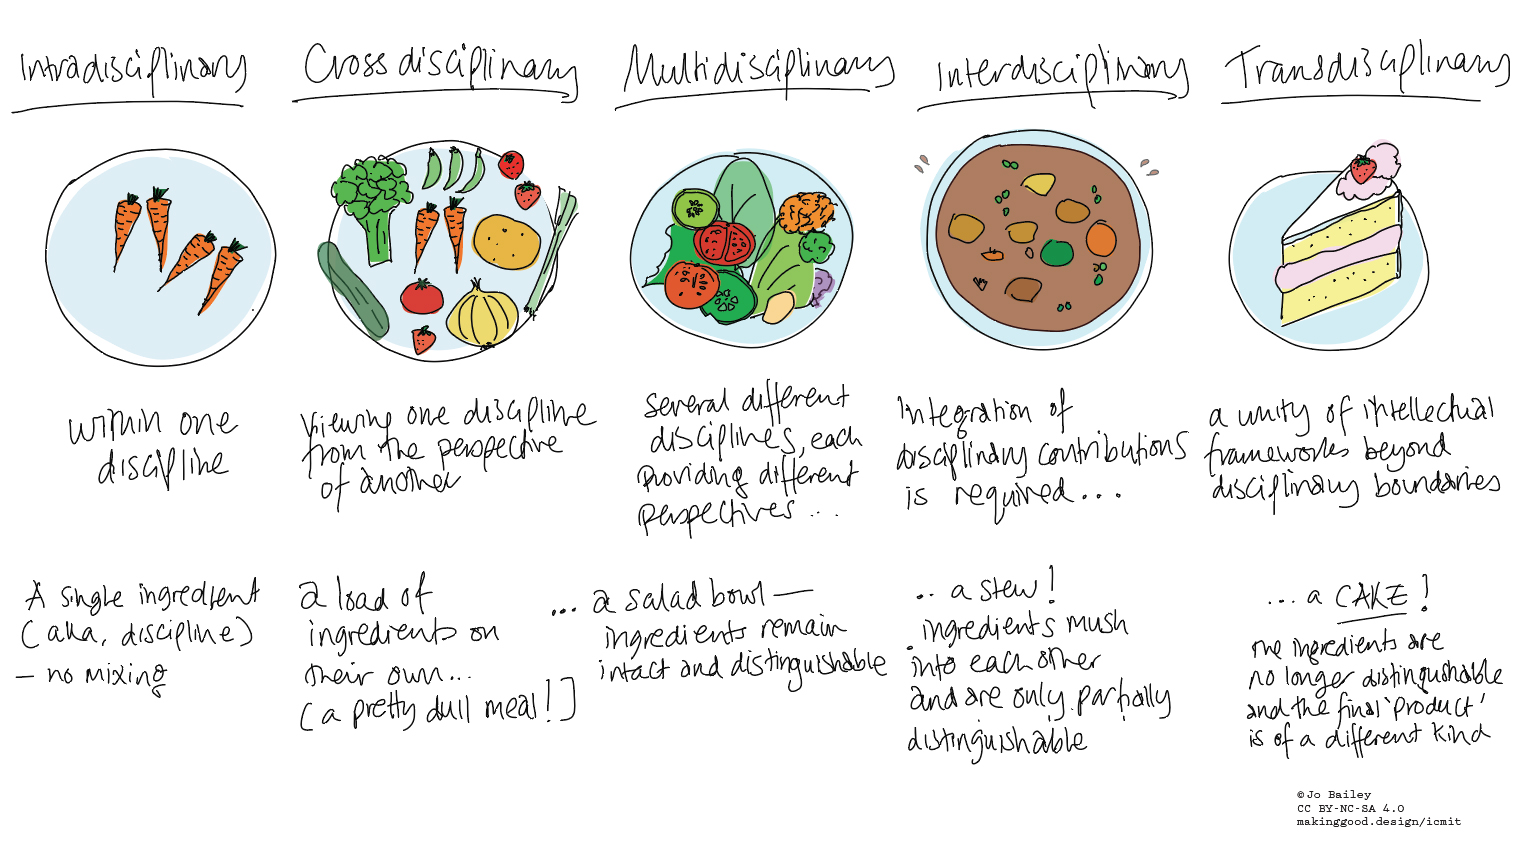 Intradisciplinary
Cross disciplinary
Multidisciplinary
Interdisciplinary
Transdisciplinary
within one
discipline
viewing one discipline
from the perspective
of another
several different
disciplines, each
providing different
perspectives...
integration of
disciplinary contributions
is required...
a unity of intellectual
frameworks beyond
disciplinary boundaries
A single ingredient
(aka, discipline)
- no mixing
a load of
ingredients on
their own...
(a pretty dull meal!)
... a salad bowl —
ingredients remain
intact and distinguishable
.. a stew!
ingredients mush
into each other
and are only partially
distinguishable
... a CAKE!
the ingredients are
no longer distinguishable
and the final 'product'
is of a different kind
©Jo Bailey
CC BY-NC-SA 4.0
makinggood.design/icmit